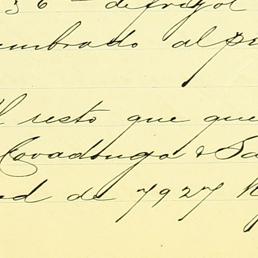 36 - de frijol
umbrado al pr
El resto que que
Covadonga & Sa
ed de 7927 K